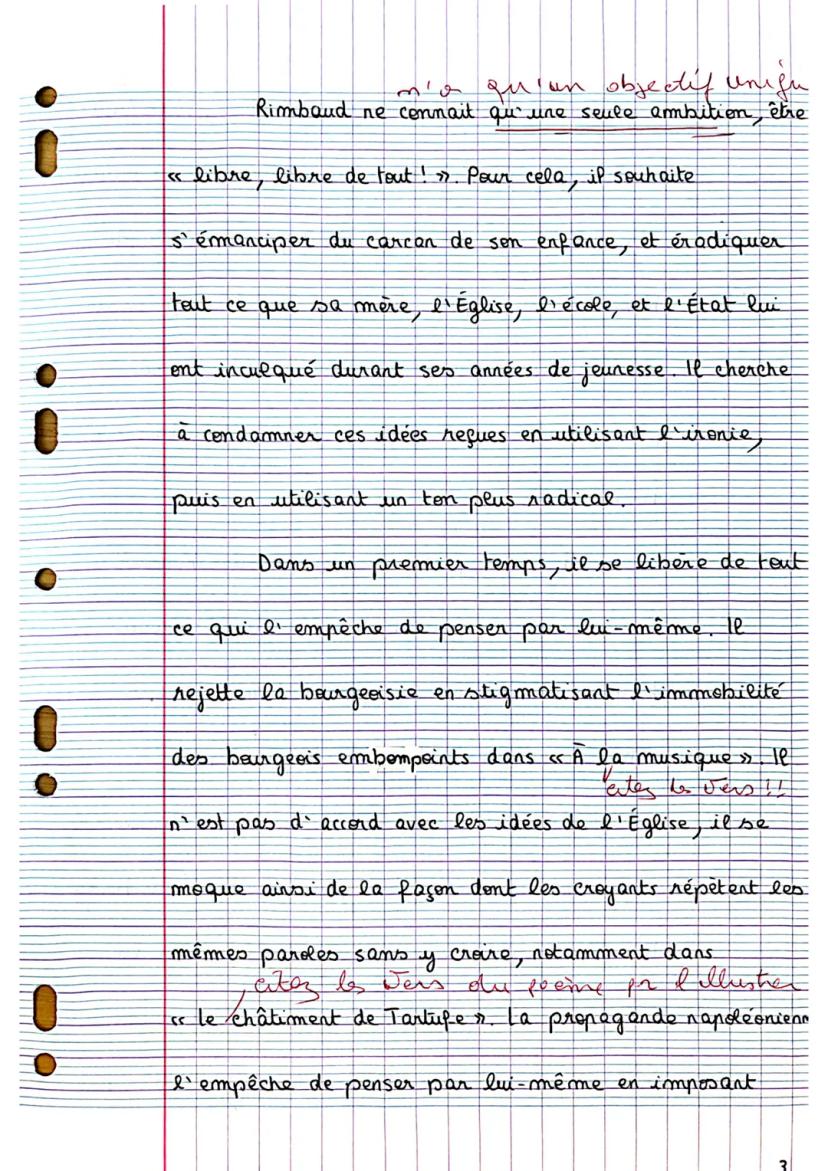 n'a qu'un objectif uniqu
Rimbaud ne connait qu'une seule ambition, être
« libre, libre de tout ! ». Pour cela, il souhaite
s'émanciper du carcan de son enfance, et éradiquer
tout ce que sa mère, l'Église, l'école, et l'État lui
ont inculqué durant ses années de jeunesse. Il cherche
à condamner ces idées reçues en utilisant l'ironie,
puis en utilisant un ton plus radical.
Dans un premier temps, il se libère de tout
ce qui l'empêche de penser par lui-même. Il
rejette la bourgeoisie en stigmatisant l'immobilité
des bourgeois embompoints dans « À la musique ». Il
citez les vers !!
n'est pas d'accord avec les idées de l'Église, il se
moque ainsi de la façon dont les croyants répètent les
mêmes paroles sans y croire, notamment dans
citez les vers du poème pr l'illustrer
« le châtiment de Tartufe ». La propagande napoléonienn
l'empêche de penser par lui-même en imposant
3